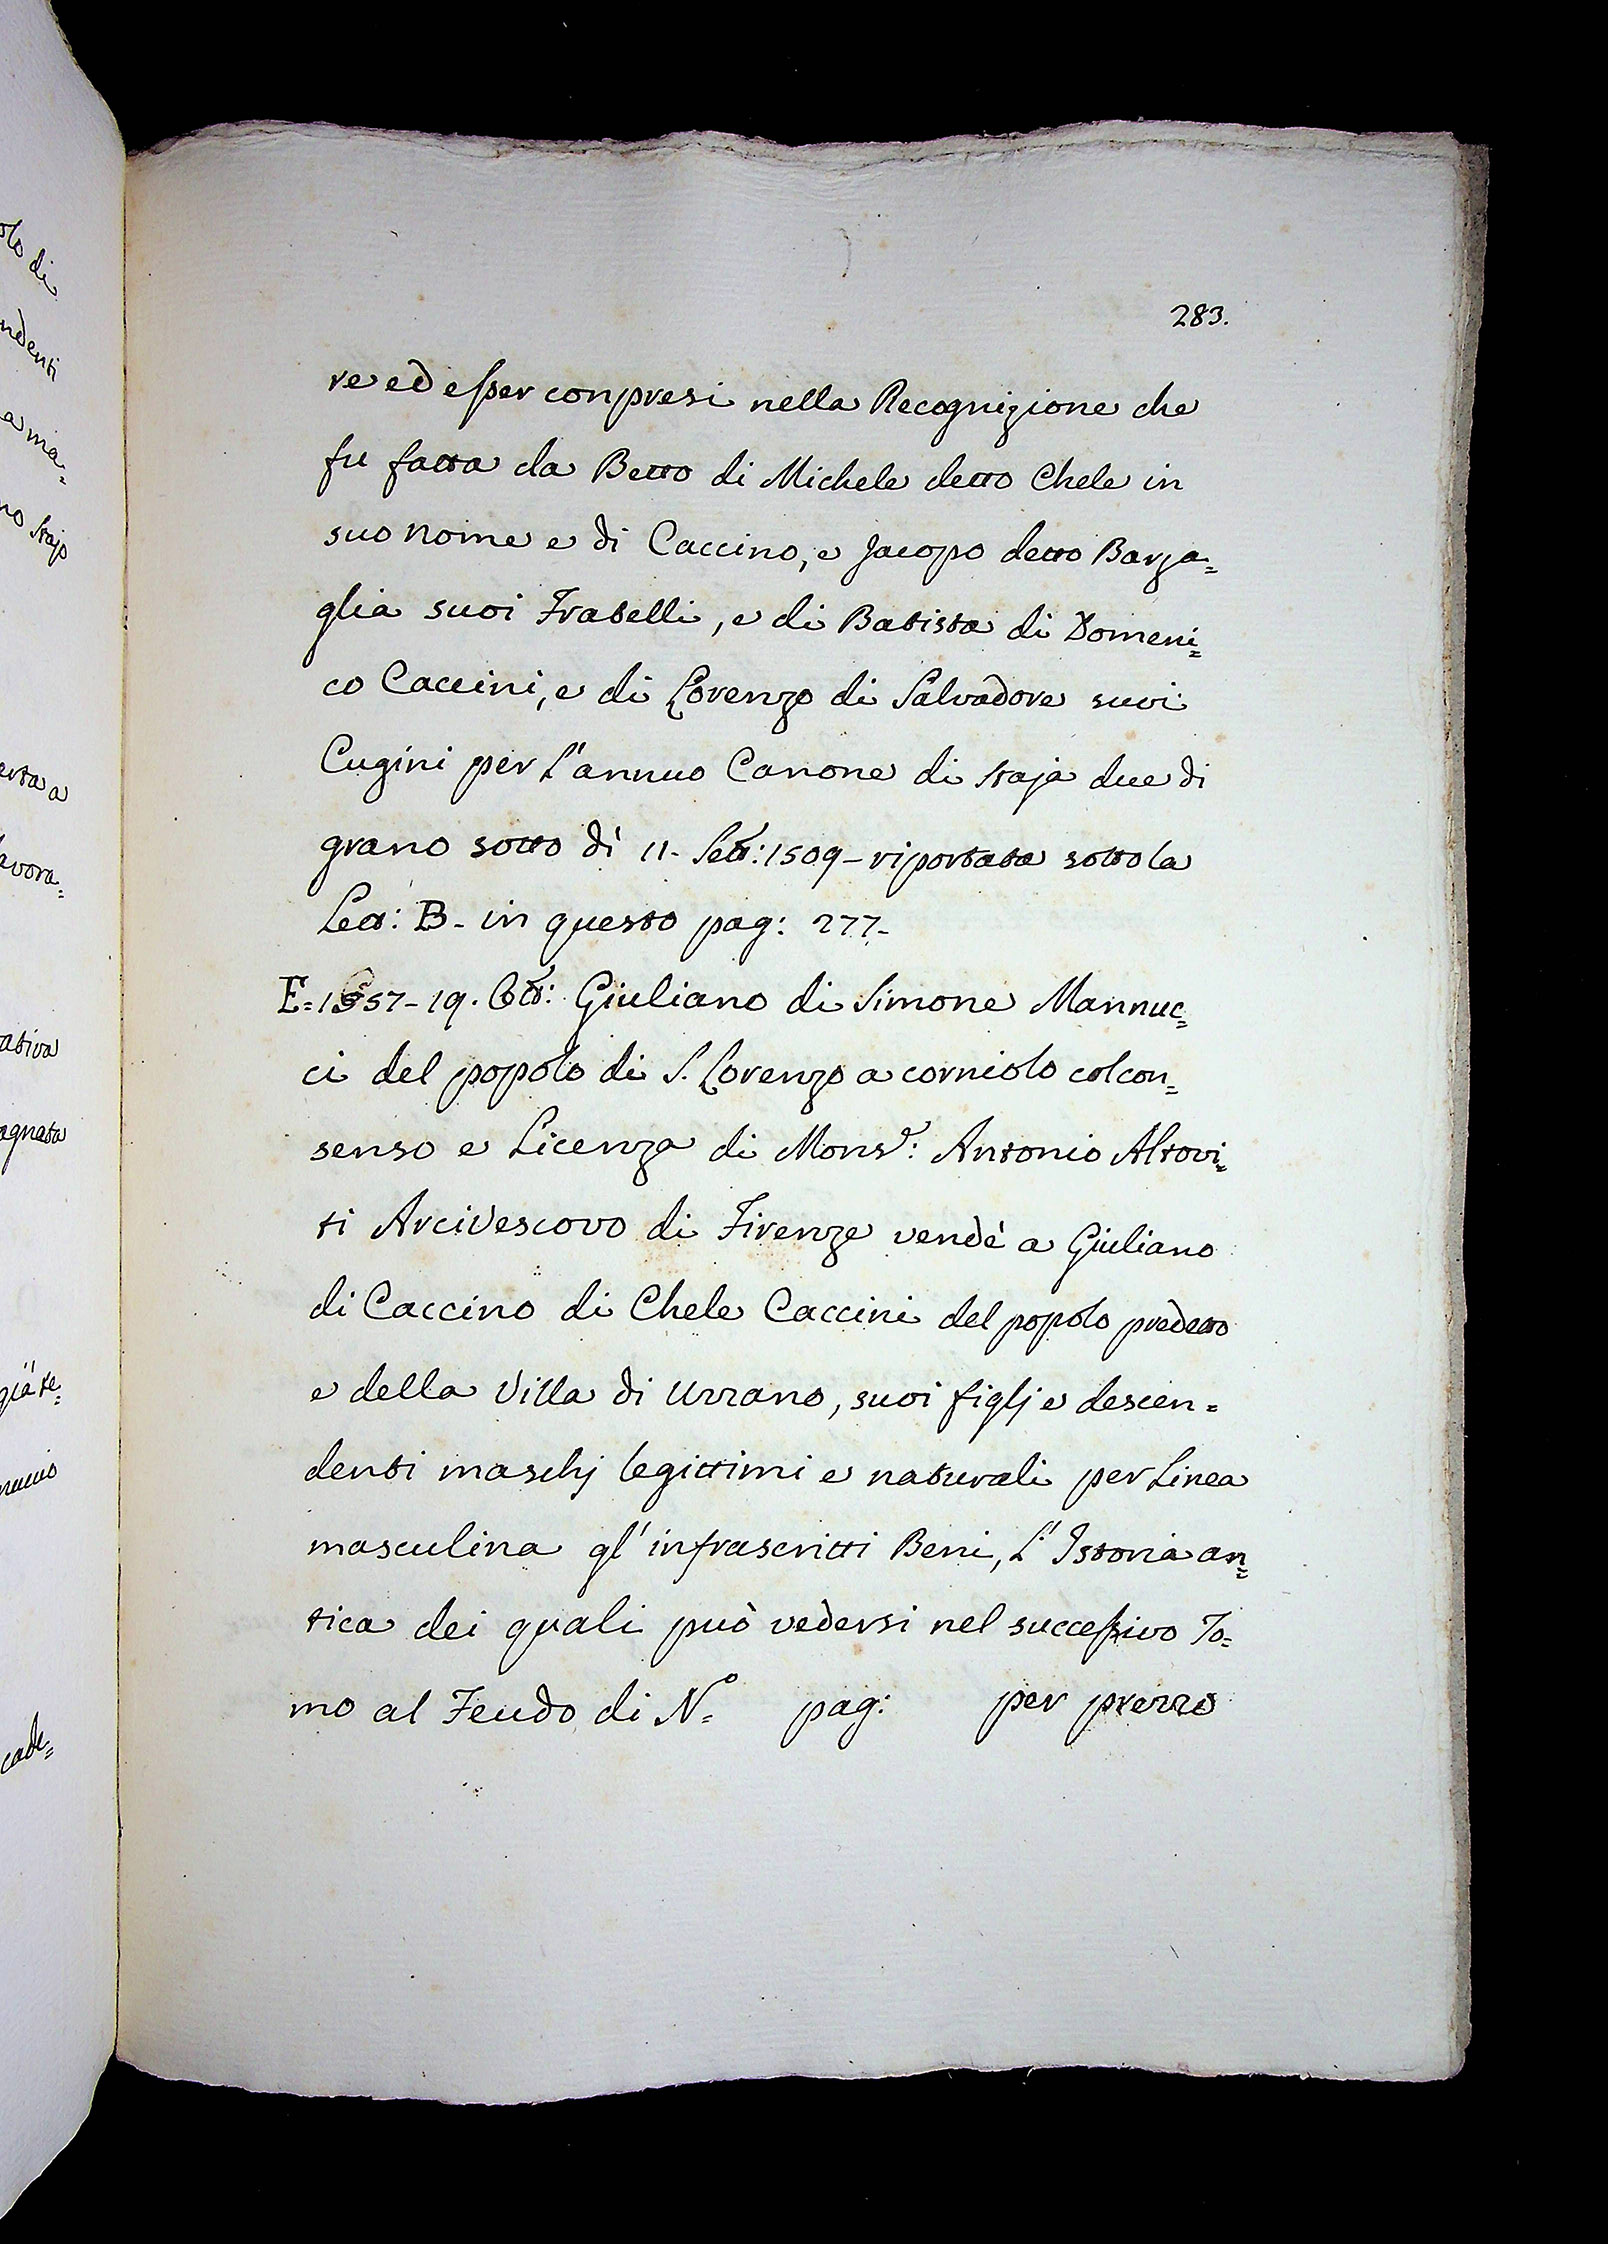 283.
re ed esser conpresi nella Recognizione che
fu fatta da Betto di Michele detto Chele in
suo nome e di Caccino, e Jacopo detto Barza=
glia suoi Fratelli, e di Batista di Domeni=
co Caccini, e di Lorenzo di Salvadore suoi
Cugini per l'annuo Canone di staja due di
grano sotto dì 11- Sett: 1509- riportata sotto la
Lett: B- in questo pag: 277-
E=1557-19. Ott: Giuliano di Simone Mannuc=
ci del popolo di S. Lorenzo a corniolo col con=
senso e Licenza di Monsr: Antonio Altovi=
ti Arcivescovo di Firenze vendè a Giuliano
di Caccino di Chele Caccini del popolo predetto
e della Villa di Uzzano, suoi figlj e descen=
denti maschj legittimi e naturali per Linea
masculina gl' infrascritti Beni, l' Istoria an=
tica dei quali può vedersi nel successivo To=
mo al Feudo di N° pag: per prezzo
olo di
ndenti
a ma=
no stajo
erta a
avora=
ativa
agnata
già te=
cade=